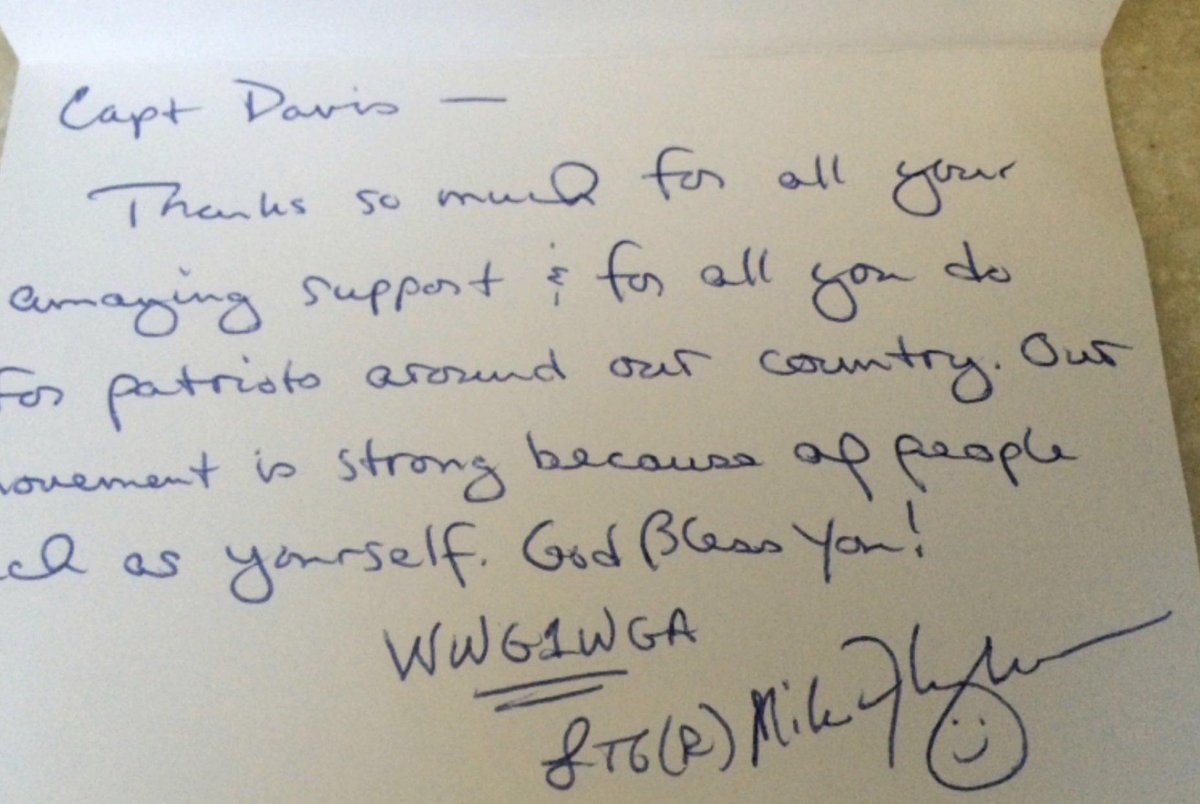 Capt Davis —
Thanks so much for all your
amazing support & for all you do
for patriots around our country. Our
movement is strong because of people
such as yourself. God Bless You!
WWG1WGA
LTG(R) Mike Flynn